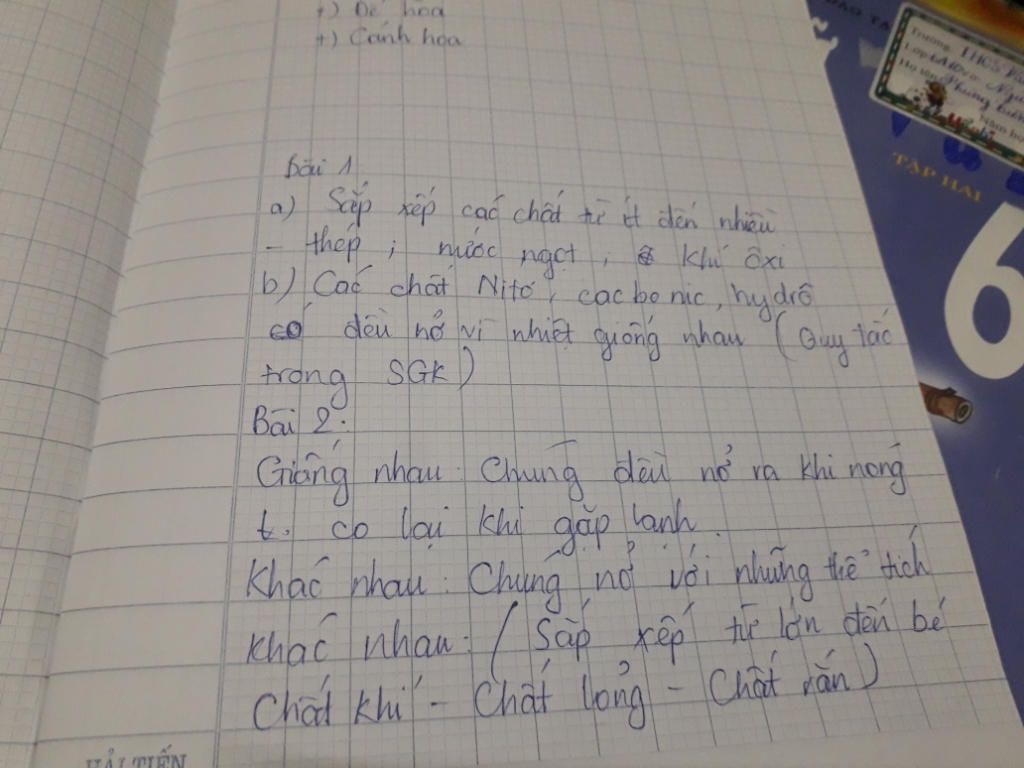 +) Đế hoa
+) Cánh hoa
Bài 1
a) Sắp xếp các chất từ ít đến nhiều
- thép ; nước ngọt ; khí ôxi
b) Các chất Nitơ, cacbonic, hyđrô
có đều nở vì nhiệt giống nhau (Quy tắc
trong SGK)
Bài 2:
Giống nhau: Chúng đều nở ra khi nóng
t. co lại khi gặp lạnh.
Khác nhau: Chúng nở với những thể tích
khác nhau: (Sắp xếp từ lớn đến bé
Chất khí - Chất lỏng - Chất rắn)
HẢI TIẾN
Trường THCS
Lớp
Họ tên
Năm học
TẬP HAI
6